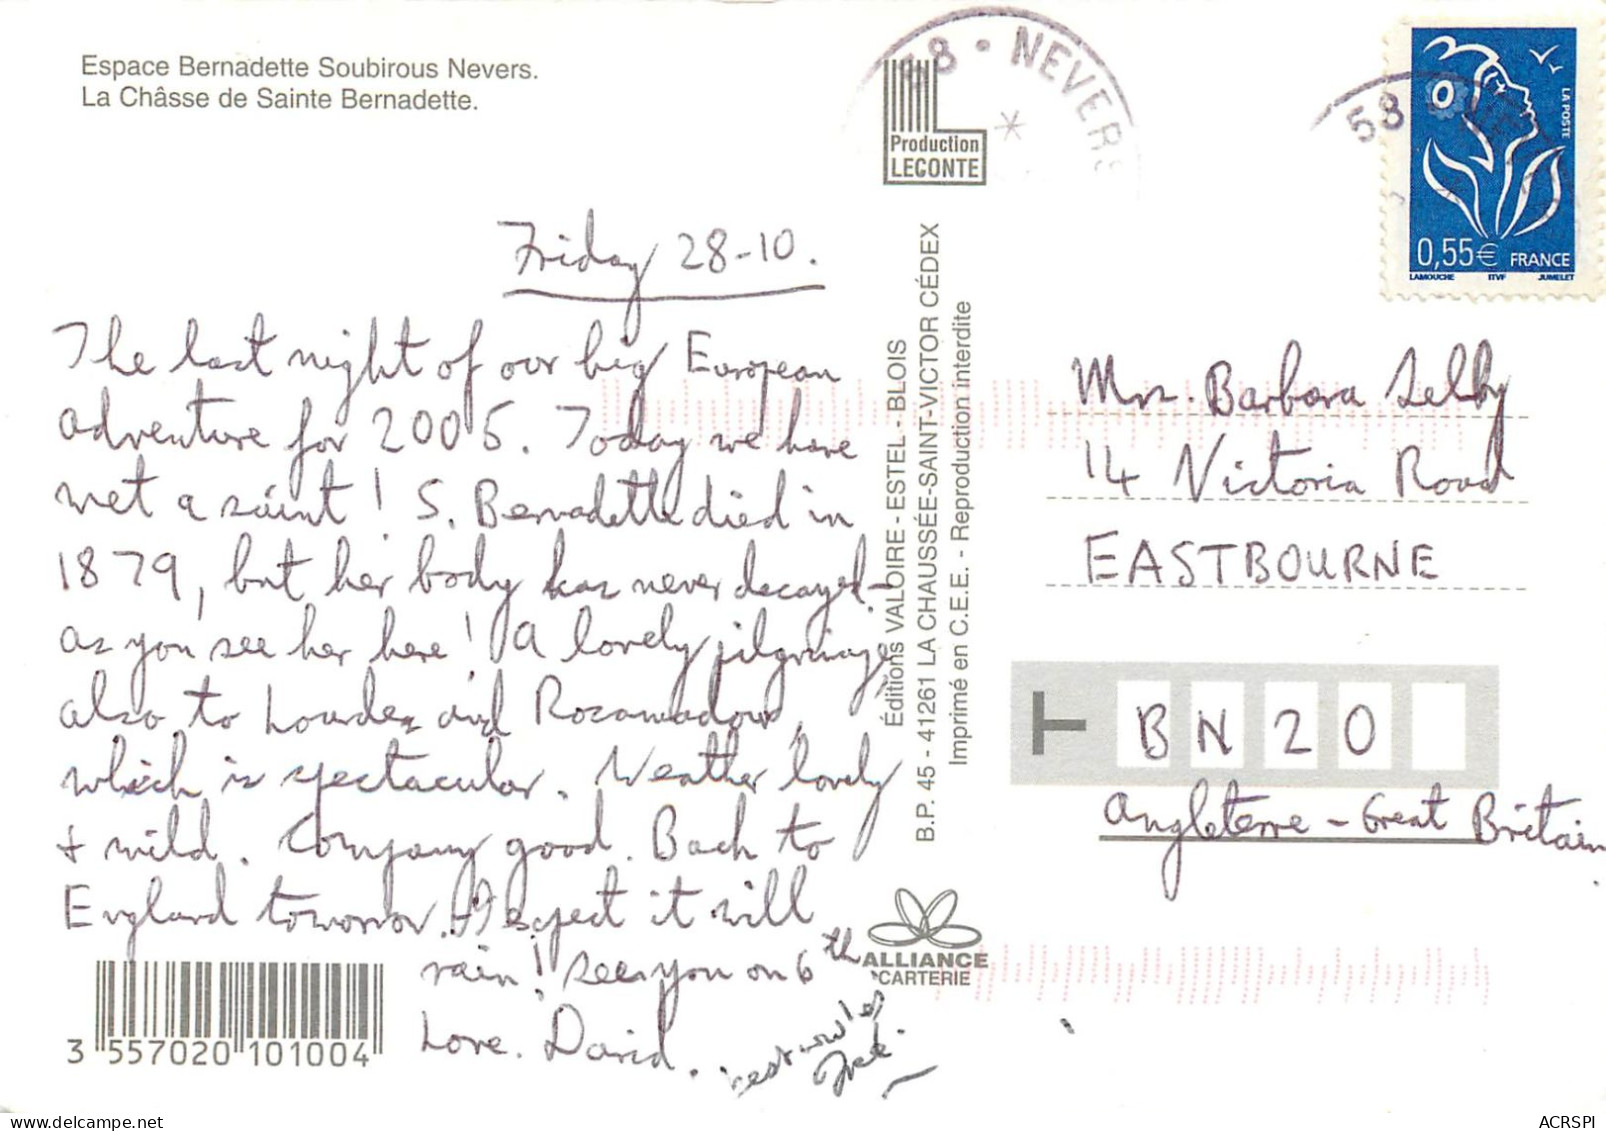 Espace Bernadette Soubirous Nevers.
La Châsse de Sainte Bernadette.
58 · NEVERS
Production
LECONTE
58
LA POSTE
0,55€ FRANCE
LAMOUCHE ITVF JUMELET
Friday 28-10.
The last night of our big European
adventure for 2005. Today we have
met a saint! S. Bernadette died in
1879, but her body has never decayed -
as you see her here! A lovely pilgrimage,
also to Lourdes and Rocamadour,
which is spectacular. Weather lovely
+ mild. Company good. Back to
England tomorrow. I expect it will
rain! See you on 6th
Love. David.
best wishes
Éditions VALOIRE - ESTEL - BLOIS
B.P. 45 - 41261 LA CHAUSSÉE-SAINT-VICTOR CÉDEX
Imprimé en C.E.E. - Reproduction interdite
Mrs. Barbara Selby
14 Victoria Road
EASTBOURNE
T BN20
Angleterre - Great Britain
ALLIANCE
CARTERIE
3 557020 101004
www.delcampe.net
ACRSPI